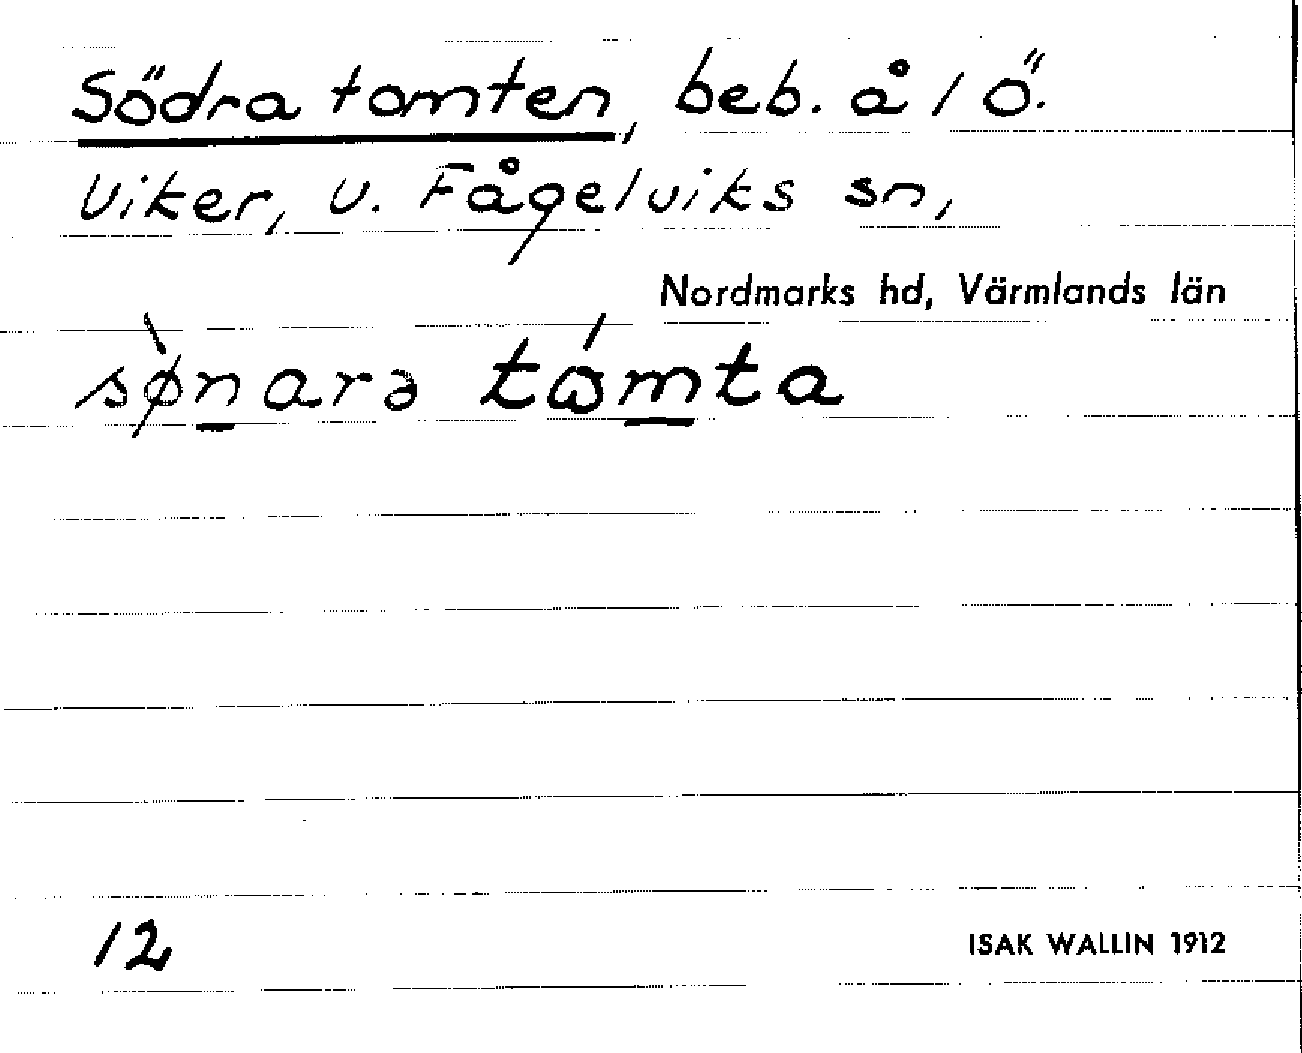 Södra tomten, beb. å 1 Ö.
Viker, V. Fågelviks sn,
Nordmarks hd, Värmlands län
sø̀narə tώmta
12
ISAK WALLIN 1912